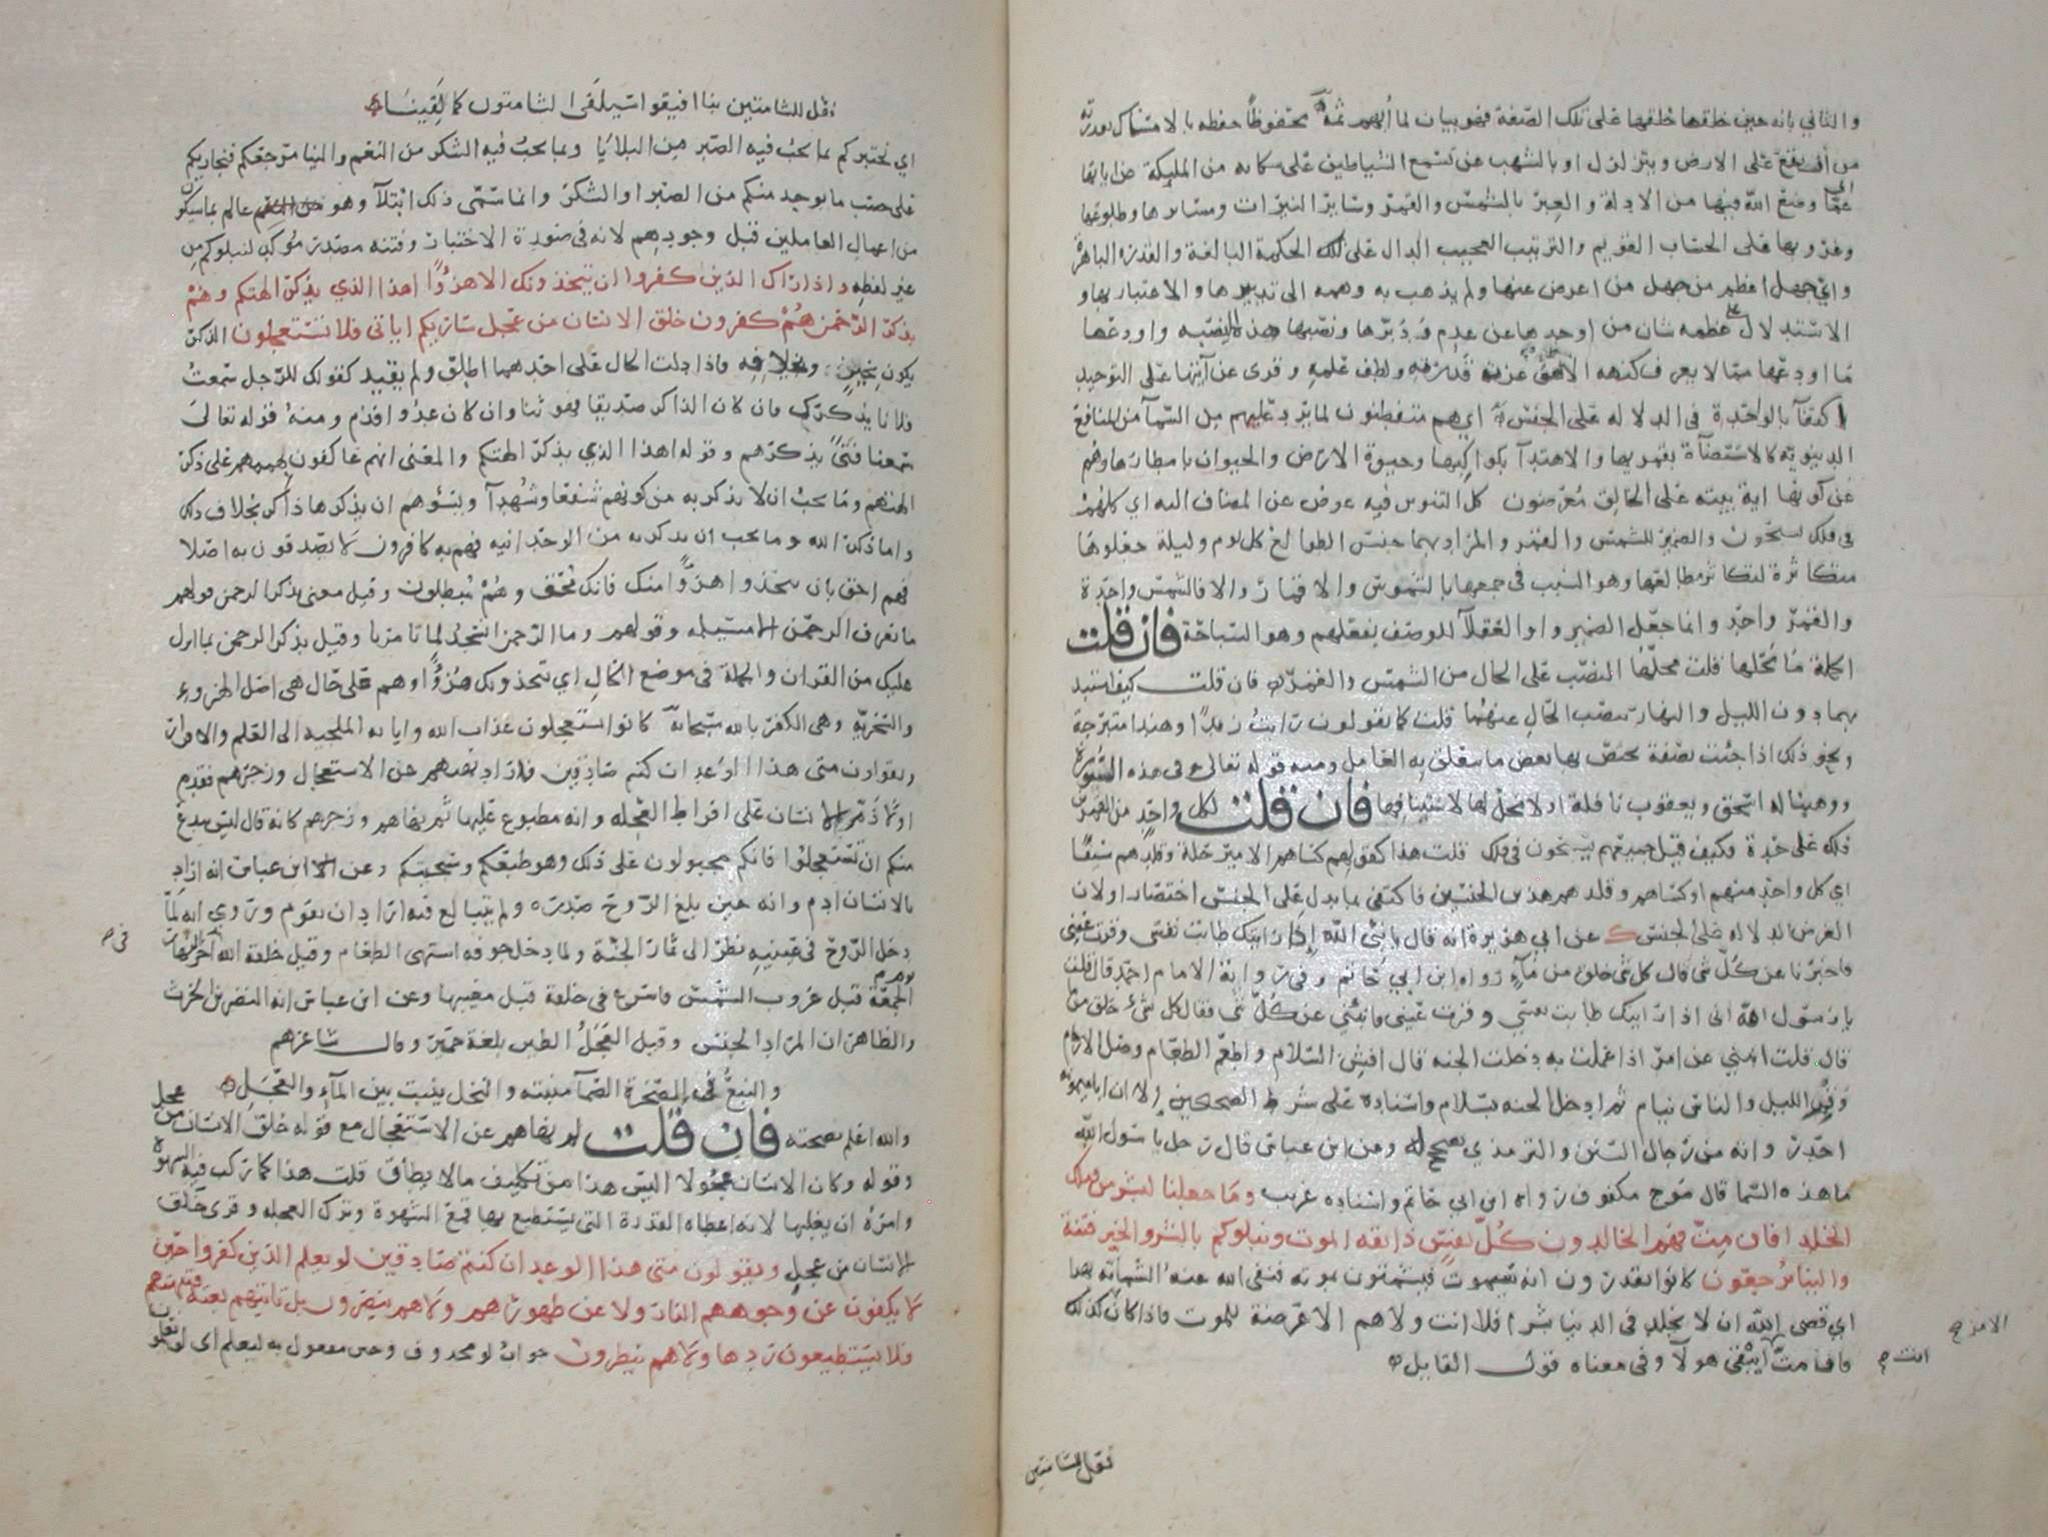 والثاني بانه حين خلقها خلقها على تلك الصفة فهو بيان لما أبهم ثمة محفوظا حفظه بالامساك بقدرته
من أن يقع على الارض ويتزلزل او بالشهب عن تسمع الشياطين على سكانه من المليكة عن اياتها
عما وضع الله فيها من الادلة والعبر بالشمس والقمر وسائر النيرات ومسائرها وطلوعها
وغروبها على الحساب القويم والترتيب العجيب الدال على تلك الحكمة البالغة والقدرة الباهرة
واي جهل اعظم من جهل من اعرض عنها ولم يذهب به وهمه الى تدبرها والاعتبار بها و
الاستدلال على عظمه شان من اوجدها عن عدم ودبرها ونصبها هذه النصبه واودعها
ما اودعها مما لا يعرف كنهه الا هو عزت قدرته ولطف علمه وقرى عن آيتها على التوحيد
اكتفآ بالواحدة في الدلاله على الجنس اي هم متفطنون لما يرد عليهم من السمآ من المنافع
الدنيويه كالاستضآة بقمريها والاهتدآ بكواكبها وحيوة الارض والحيوان بامطارها وهم
عن كونها اية بينه على الخالق معرضون كل التنوين فيه عوض عن المضاف اليه اي كلهم
في فلك يسبحون والضمير للشمس والقمر والمراد بهما جنس الطوالع كل يوم وليلة جعلوها
متكاثرة لتكاثر مطالعها وهو السبب في جمعها بالشموس والاقمار والا فالشمس واحدة
والقمر واحد وانما جعل الضمير واو العقلآ للوصف بفعلهم وهو السباحة فان قلت
الجملة ما محلها قلت محلها النصب على الحال من الشمس والقمر فان قلت كيف استبد
بهما دون الليل والنهار بنصب الحال عنهما قلت كما تقولون رايت زيدا وهندا متبرجة
ونحو ذلك اذا جئت بصفة يختص بها بعض ما تعلق به العامل ومنه قوله تعالى في هذه السورة
ووهبنا له اسحق ويعقوب نافلة اولا محل لها لاستينافها فان قلت لكل واحد من القمرين
فلك على حدة فكيف قيل جميعهم يسبحون في فلك قلت هذا كقولهم كساهم الامير حلة وقلدهم سيفا
اي كل واحد منهم او كساهم وقلدهم هذين الجنسين فاكتفى بما يدل على الجنس اختصارا ولان
الغرض الدلاله على الجنس عن ابي هريرة انه قال يا نبي الله اذا رايتك طابت نفسي وقرت عيني
فاخبرنا عن كل شي قال كل شي خلق من مآء رواه ابن ابي حاتم وفي رواية الامام احمد قال قلت
يا رسول الله اني اذا رايتك طابت نفسي وقرت عيني فانبئني عن كل شي فقال كل شيء خلق من مآ
قال قلت انبئني عن امر اذا عملت به دخلت الجنه قال افش السلام واطعم الطعام وصل الارحام
وقم الليل والناس نيام ثم ادخل الجنه بسلام واسناده على شرط الصحيحين الا ان ابا ميمونه
احدر وانه من رجال السنن والترمذي يصحح له وعن ابن عباس قال رجل يا رسول الله
ما هذه السما قال موج مكفوف رواه ابن ابي حاتم واسناده غريب وما جعلنا لبشر من قبلك
الخلد افان مت فهم الخالدون كل نفس ذايقه الموت ونبلوكم بالشر والخير فتنة
والينا ترجعون كانوا يقدرون انه سيموت فيشمتون بموته فنفى الله عنه الشماته بهذا
اي قضى الله ان لا يخلد في الدنيا بشرا فلا انت ولا هم الا عرضة للموت فاذا كان كذلك
الامر
فان مت ايبقى هولآ وفي معناه قول القايل
انت
فقل للشامتين
فقل للشامتين بنا افيقوا سيلقى الشامتون كما لقينا
اي نختبركم بما يجب فيه الصبر من البلايا وبما يجب فيه الشكر من النعم والينا مرجعكم فنجازيكم
على حسب ما يوجد منكم من الصبر او الشكر وانما سمى ذلك ابتلآ وهو عالم بما سيكون
من اعمال العاملين قبل وجودهم لانه في صورة الاختبار وفتنه مصدر مؤكد لنبلوكم من
غير لفظه واذا راك الذين كفروا ان يتخذونك الا هزوا اهذا الذي يذكر الهتكم وهم
بذكر الرحمن هم كفرون خلق الانسان من عجل ساريكم اياتي فلا تستعجلون الذكر
يكون بخير وبخلافه فاذا دلت الحال على احدهما اطلق ولم يقيد كقولك للرجل سمعت
فلانا يذكرك فان كان الذاكر صديقا فهو ثنا وان كان عدوا فذم ومنه قوله تعالى
سمعنا فتى يذكرهم وقوله اهذا الذي يذكر الهتكم والمعنى انهم عاكفون بهممهم على ذكر
الهتهم وما يجب ان لا يذكر به من كونهم شفعا وشهدآ ويسؤهم ان يذكرها ذاكر بخلاف ذلك
واما ذكر الله وما يجب ان يذكر به من الوحدانيه فهم به كافرون لا يصدقون به اصلا
فهم احق بان يتخذوا هزوا منك فانك محق وهم مبطلون وقيل معنى بذكر الرحمن قولهم
ما نعرف الرحمن الا مسيلمه وقولهم وما الرحمن انسجد لما تامرنا وقيل بذكر الرحمن بما انزل
عليك من القران والجملة في موضع الحال اي يتخذونك هزوا وهم على حال هي اصل الهزوء
والسخرية وهي الكفر بالله سبحانه كانوا يستعجلون عذاب الله واياته الملجيه الى العلم والاقرار
ويقولون متى هذا الوعد ان كنتم صادقين فاراد نهيهم عن الاستعجال وزجرهم فقدم
اولا ذم الانسان على افراط العجله وانه مطبوع عليها ثم نهاهم وزجرهم كانه قال ليس ببدع
منكم ان تستعجلوا فانكم مجبولون على ذلك وهو طبعكم وسجيتكم وعن ابن عباس انه اراد
بالانسان ادم وانه حين بلغ الروح صدره ولم يتبالغ فيه اراد ان يقوم وروي انه لما
دخل الروح في عينيه نظر الى ثمار الجنة ولما دخل جوفه اشتهى الطعام وقيل خلقه الله اخر النهار
في
يوم
الجمعة قبل غروب الشمس فاسرع في خلقه قبل مغيبها وعن ابن عباس انه النضر بن الحرث
والظاهر ان المراد الجنس وقيل العجل الطين بلغة حمير وقال شاعرهم
والنبع في الصخرة الصمآ منبته والنخل ينبت بين المآء والعجل
والله اعلم بصحته فان قلت لم نهاهم عن الاستعجال مع قوله خلق الانسان من عجل
وقوله وكان الانسان عجولا اليس هذا من تكليف ما لا يطاق قلت هذا كما ركب فيه الشهوة
وامره ان يغلبها لانه اعطاه القدرة التي يستطيع بها قمع الشهوة وترك العجله وقرى خلق
الانسان من عجل ويقولون متى هذا الوعد ان كنتم صادقين لو يعلم الذين كفروا حين
لا يكفون عن وجوههم النار ولا عن ظهورهم ولا هم ينصرون بل تاتيهم بغتة فتبهتهم
فلا يستطيعون ردها ولا هم ينظرون جواب لو محذوف وحين مفعول به ليعلم اي لو يعلمون